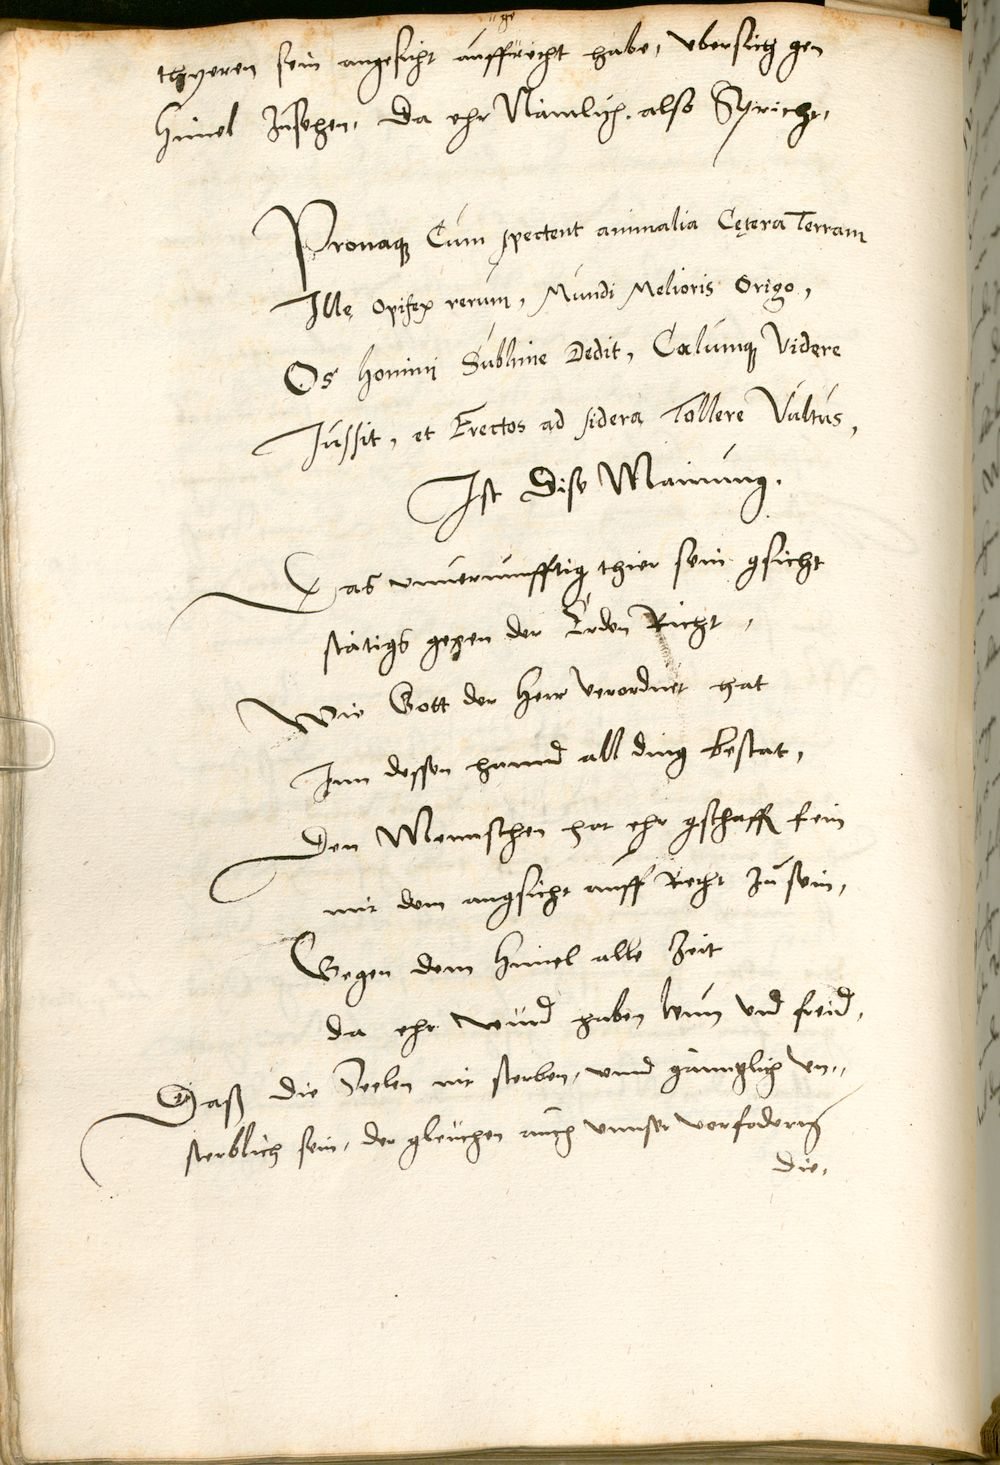 thyeren sein angesicht auffgerecht habe, vbersich gen
himel zusehen, da ehr Nämlich also Spricht,
Pronaq₃ Cum spectent animalia Cętera Terram
Ille opifex rerum, Mundi Melioris Origo,
Os homini Sublime Dedit, Cælumq₃ Videre
Jussit, et Erectos ad sidera Tollere Vultus,
Ist dise Mainung.
Das vnuernunfftig thier sein gsicht
stätigs gegen der Erden Richt,
Wie Gott der Herr Verordnet hat
Inn dessen hannd all ding bestat,
Den Mennschen hat ehr gschaffen fein
mit dem angsicht auff Recht zu sein,
Gegen dem himel alle Zeit
da ehr würd haben wun vnd freid,
Daß die Seelen nit sterben, vnnd gänntzlich vn-
sterblich sein, der gleichen auch vnnser vorfoderen
die,